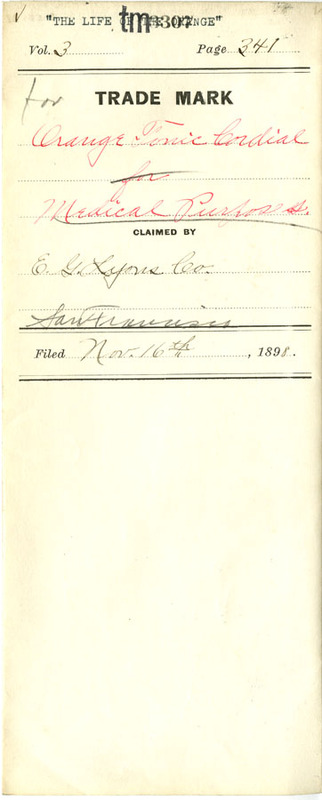 "THE LIFE OF THE ORANGE"
tm 1307
Vol. 3 Page 341
for TRADE MARK
Orange Tonic Cordial
for
Medical Purposes.
CLAIMED BY
E. G. Lyons Co.
San Francisco
Filed Nov. 16th, 1898.